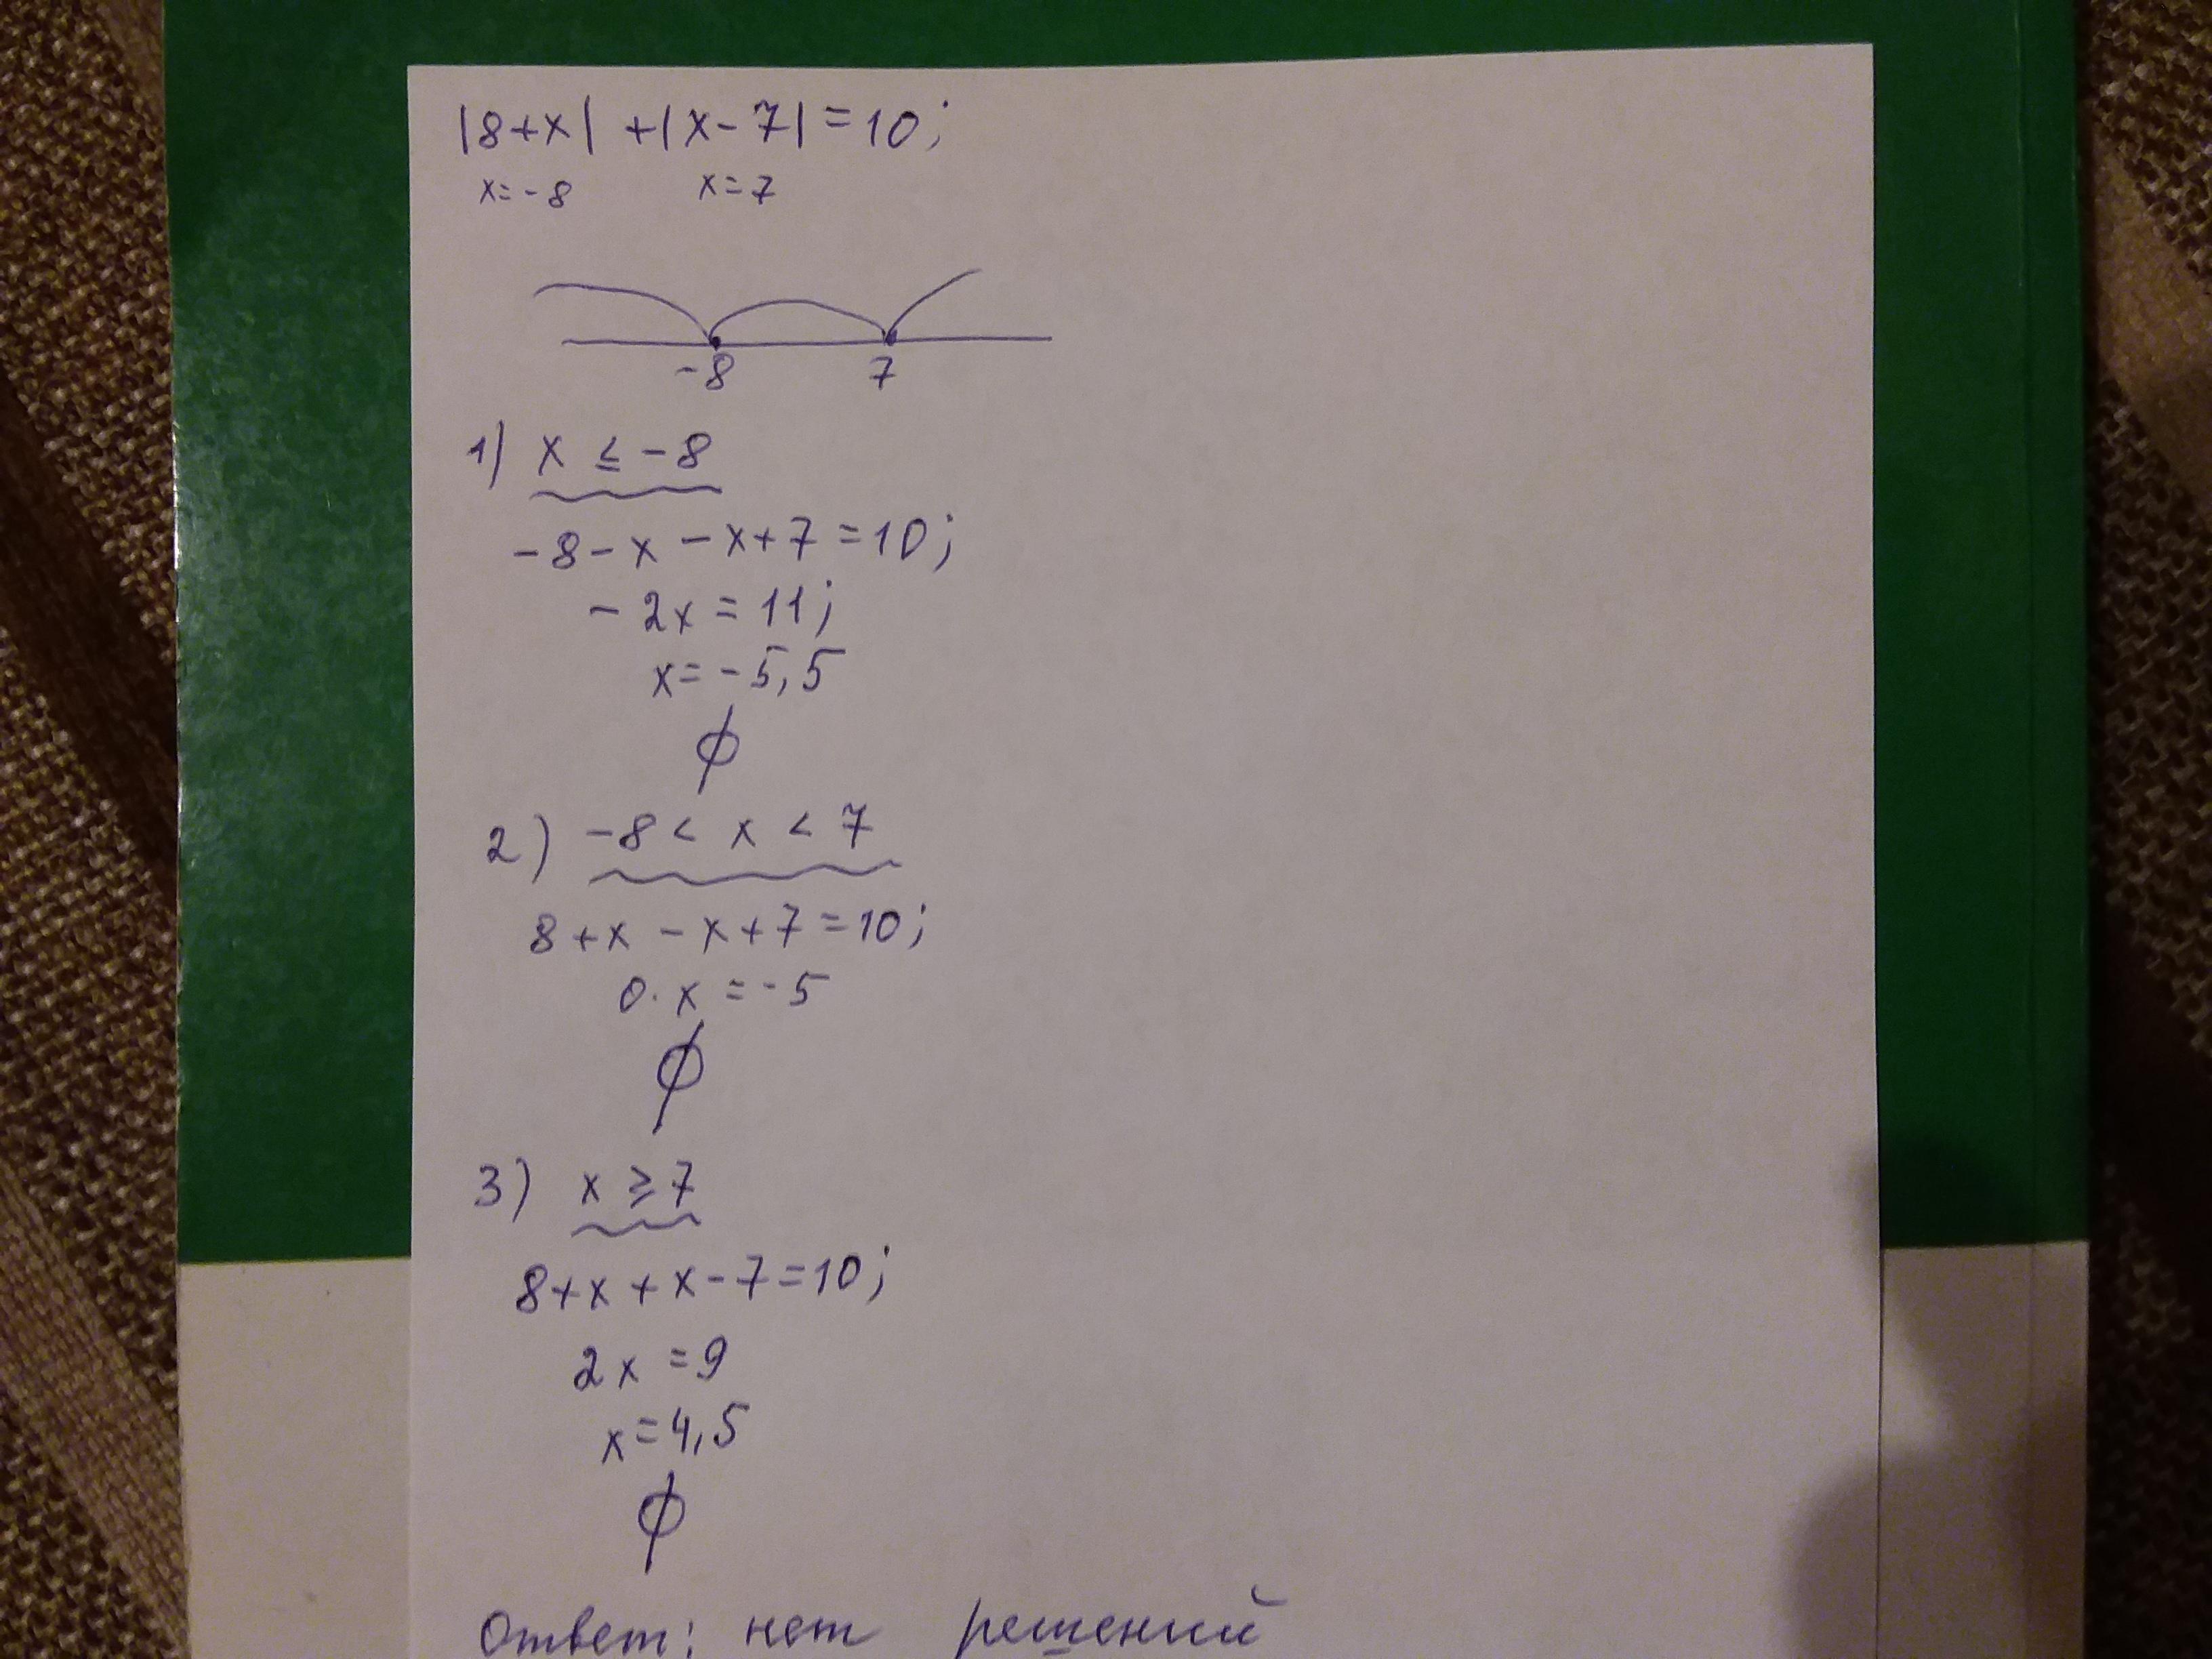 |8+x| +|x-7|=10;
x=-8 x=7
-8 7
1) x ≤ -8
-8-x-x+7=10;
-2x=11;
x=-5,5
∅
2) -8< x < 7
8+x-x+7=10;
0·x=-5
∅
3) x ≥ 7
8+x+x-7=10;
2x=9
x=4,5
∅
Ответ: нет решений